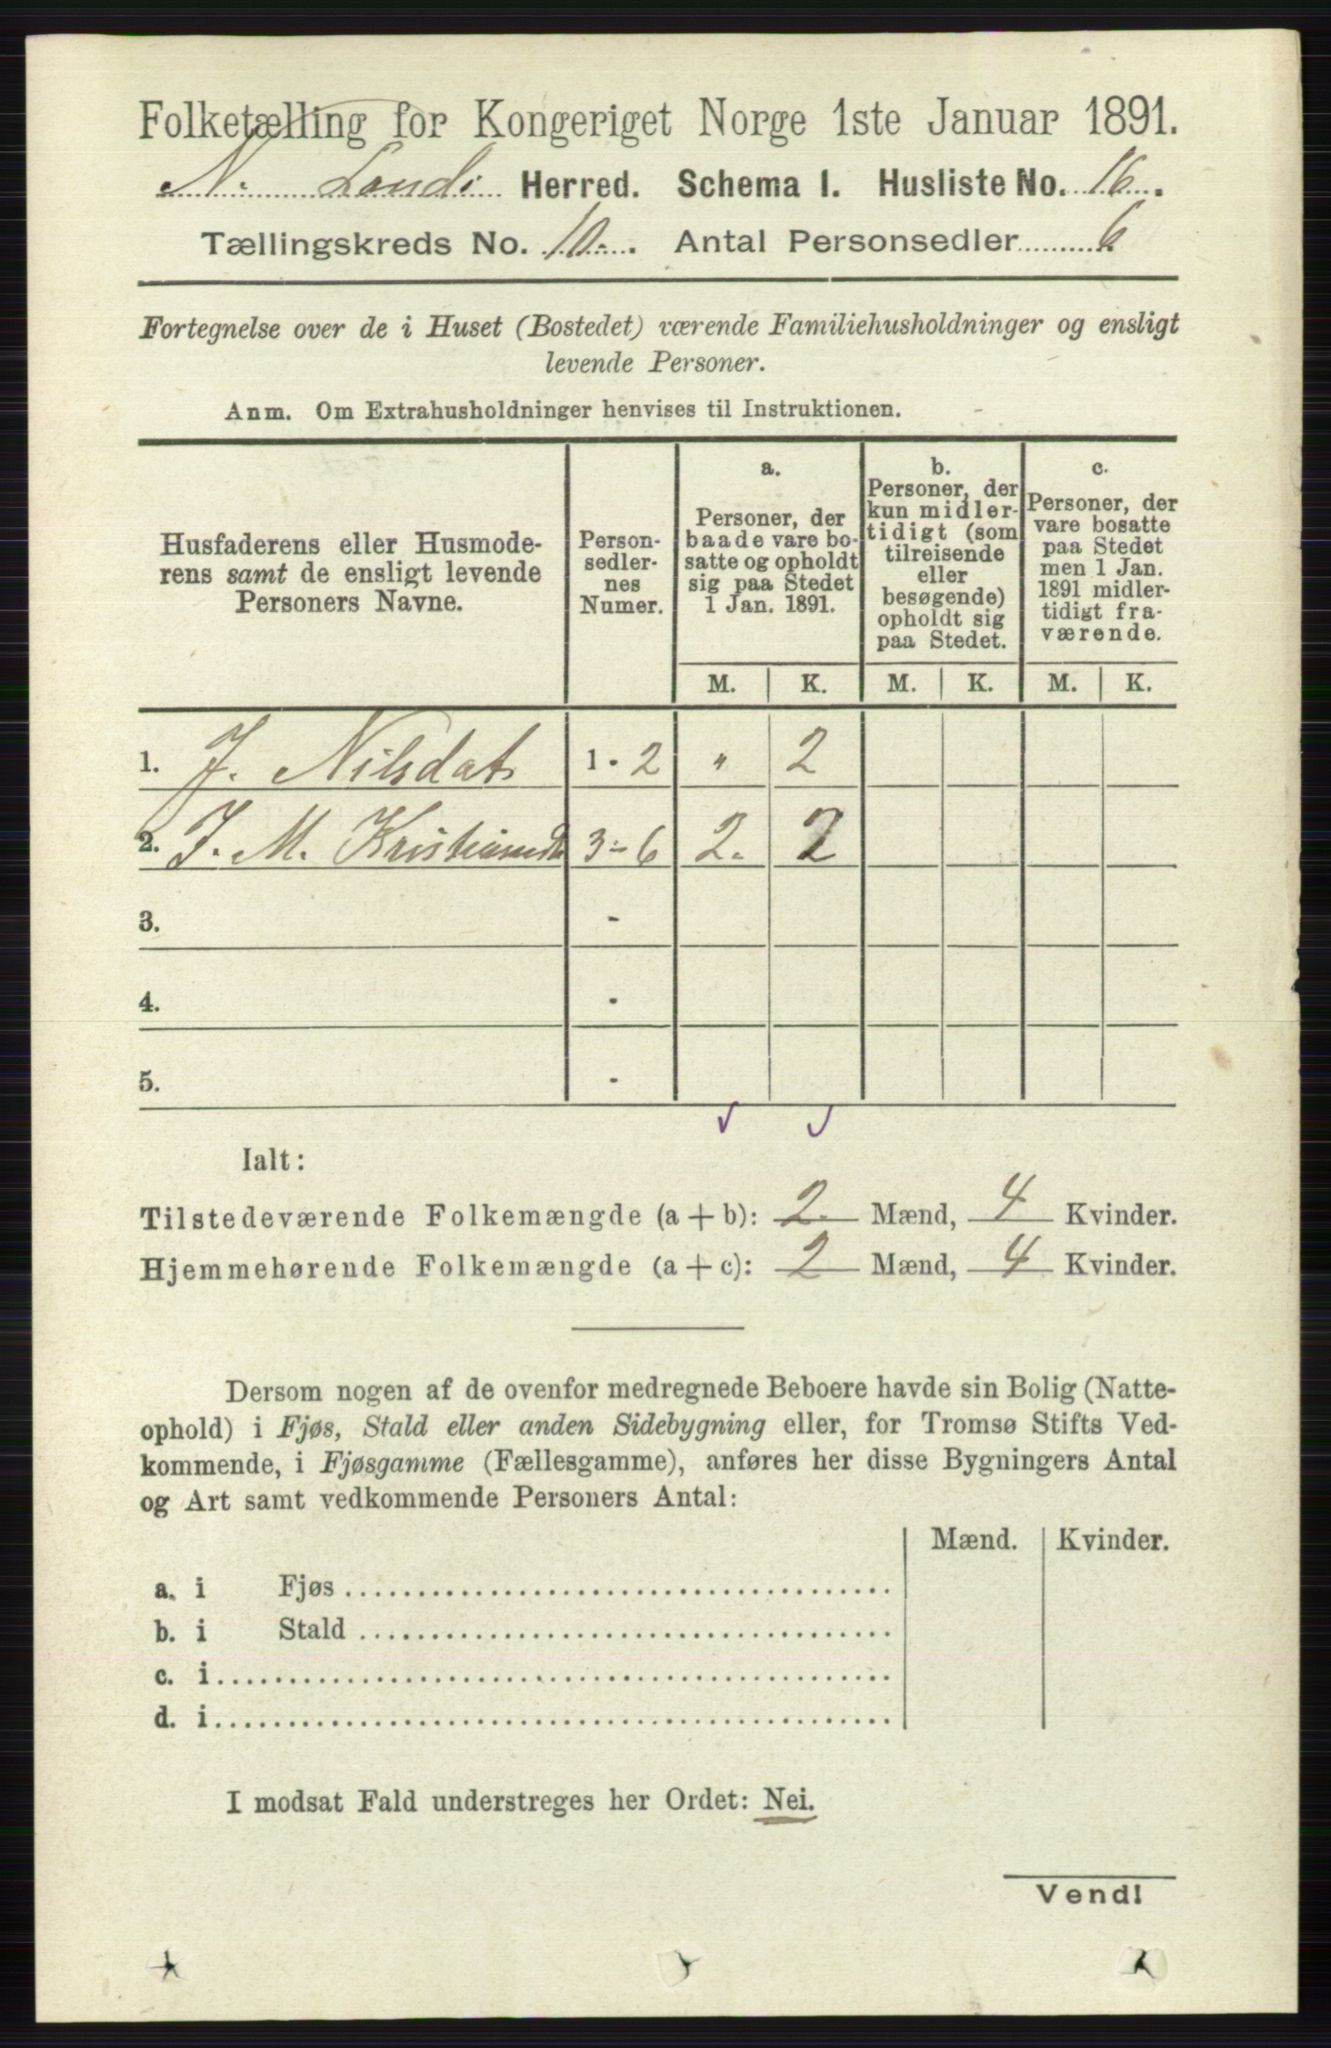 Folketælling for Kongeriget Norge 1ste Januar 1891.
N. Lands Herred. Schema I. Husliste No. 16.
Tællingskreds No. 10. Antal Personsedler 6
Fortegnelse over de i Huset (Bostedet) værende Familiehusholdninger og ensligt
levende Personer.
Anm. Om Extrahusholdninger henvises til Instruktionen.
Husfaderens eller Husmode-
rens samt de ensligt levende
Personers Navne.
Person-
sedler-
nes
Numer.
a.
Personer, der
baade vare bo-
satte og opholdt
sig paa Stedet
1 Jan. 1891.
b.
Personer, der
kun midler-
tidigt (som
tilreisende
eller
besøgende)
opholdt sig
paa Stedet.
c.
Personer, der
vare bosatte
paa Stedet
men 1 Jan.
1891 midler-
tidigt fra-
værende.
M. K. M. K. M. K.
1. J. Nilsdat. 1 - 2 " 2
2. J. M. Kristiansdt 3 - 6 2. 2
3. -
4. -
5. -
Ialt:
Tilstedeværende Folkemængde (a + b): 2. Mænd, 4 Kvinder.
Hjemmehørende Folkemængde (a + c): 2 Mænd, 4 Kvinder.
Dersom nogen af de ovenfor medregnede Beboere havde sin Bolig (Natte-
ophold) i Fjøs, Stald eller anden Sidebygning eller, for Tromsø Stifts Ved-
kommende, i Fjøsgamme (Fællesgamme), anføres her disse Bygningers Antal
og Art samt vedkommende Personers Antal:
Mænd. Kvinder.
a. i Fjøs
b. i Stald
c. i
d. i
I modsat Fald understreges her Ordet: Nei.
Vend!